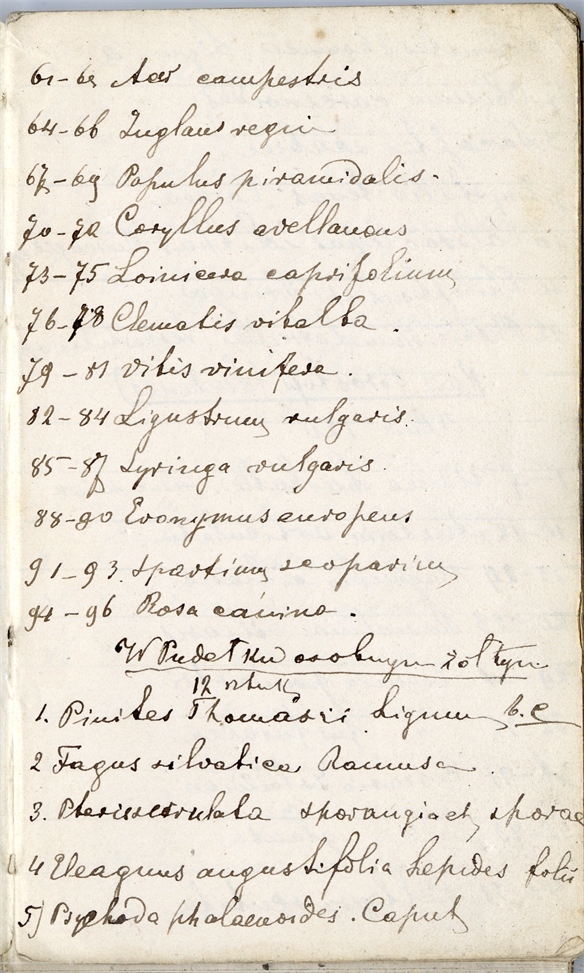 61-63 Acer campestris
64-66 Juglans regia
67-69 Populus piramidalis.
70-72 Coryllus avellanous
73-75 Loinicera caprifolium
76-78 Clematis vitalba.
79-81 Vitis vinifera.
82-84 Ligustrum vulgaris.
85-87 Syringa vulgaris.
88-90 Evonymus europeus
91-93. Spartium scoparium
94-96 Rosa canina.
W Pudełku osobnym żółtym
12 sztuk
1. Pinites Thomasii Lignum b.c
2 Fagus silvatica Ramus
3. Pteris serrulata sporangia et sporae
4 Eleagnus angustifolia Lepides folii
5) Psychoda phalaenoides. Caput